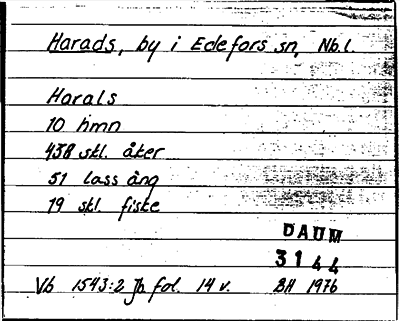 Harads, by i Edefors sn, Nb.l.
Harals
10 hmn
438 skl. åker
51 lass äng
19 skl. fiske
DAUM
3144
Vb 1543:2 Jb fol. 14 v. BH 1976